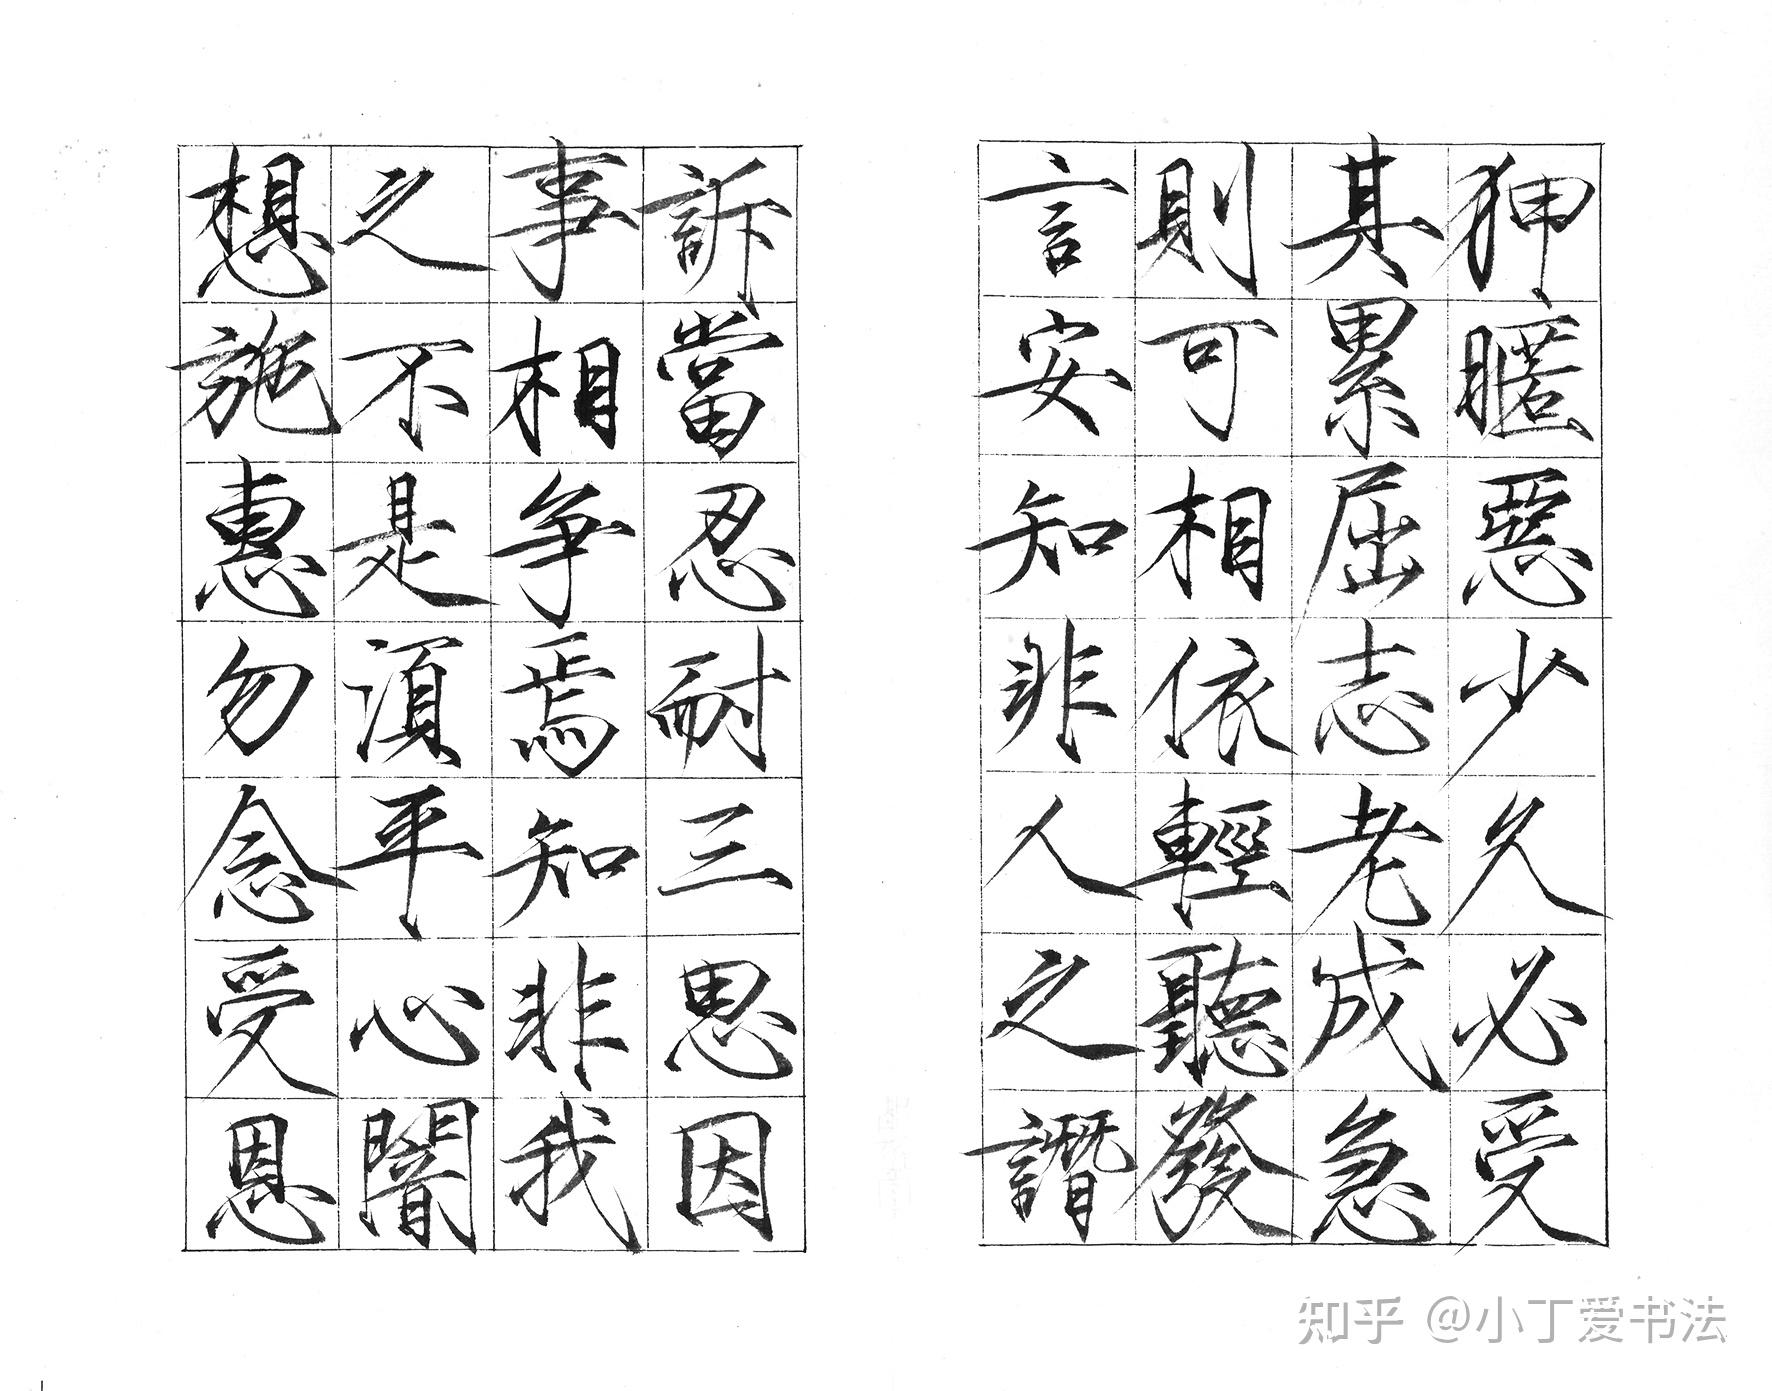 狎暱惡少久必受
其累屈志老成急
則可相依輕聽發
言安知非人之譖
訴當忍耐三思因
事相爭焉知非我
之不是須平心闇
想施惠勿念受恩
知乎 @小丁爱书法